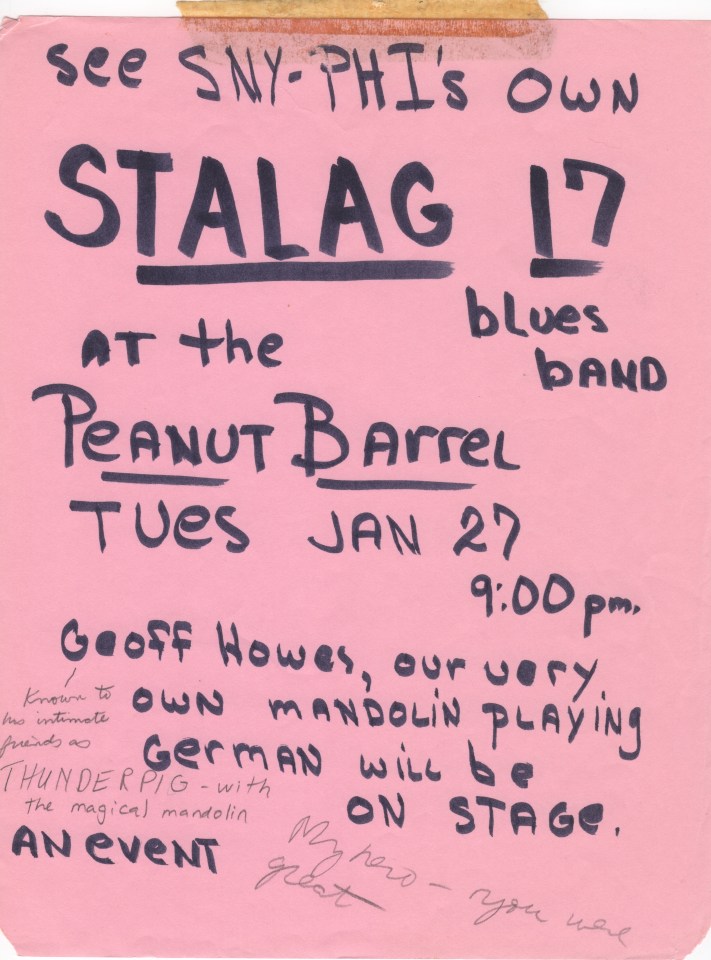 see SNY-PHI's OWN
STALAG 17
blues
bAND
AT the
PeANUT BArrel
TUes JAN 27
9:00 pm.
Geoff Howes, our very
OWN MANDOLIN PLAYING
GerMAN will be
ON STAGe.
Known to
his intimate
friends as
THUNDERPIG - with
the magical mandolin
AN eveNT
My hero - you were
great